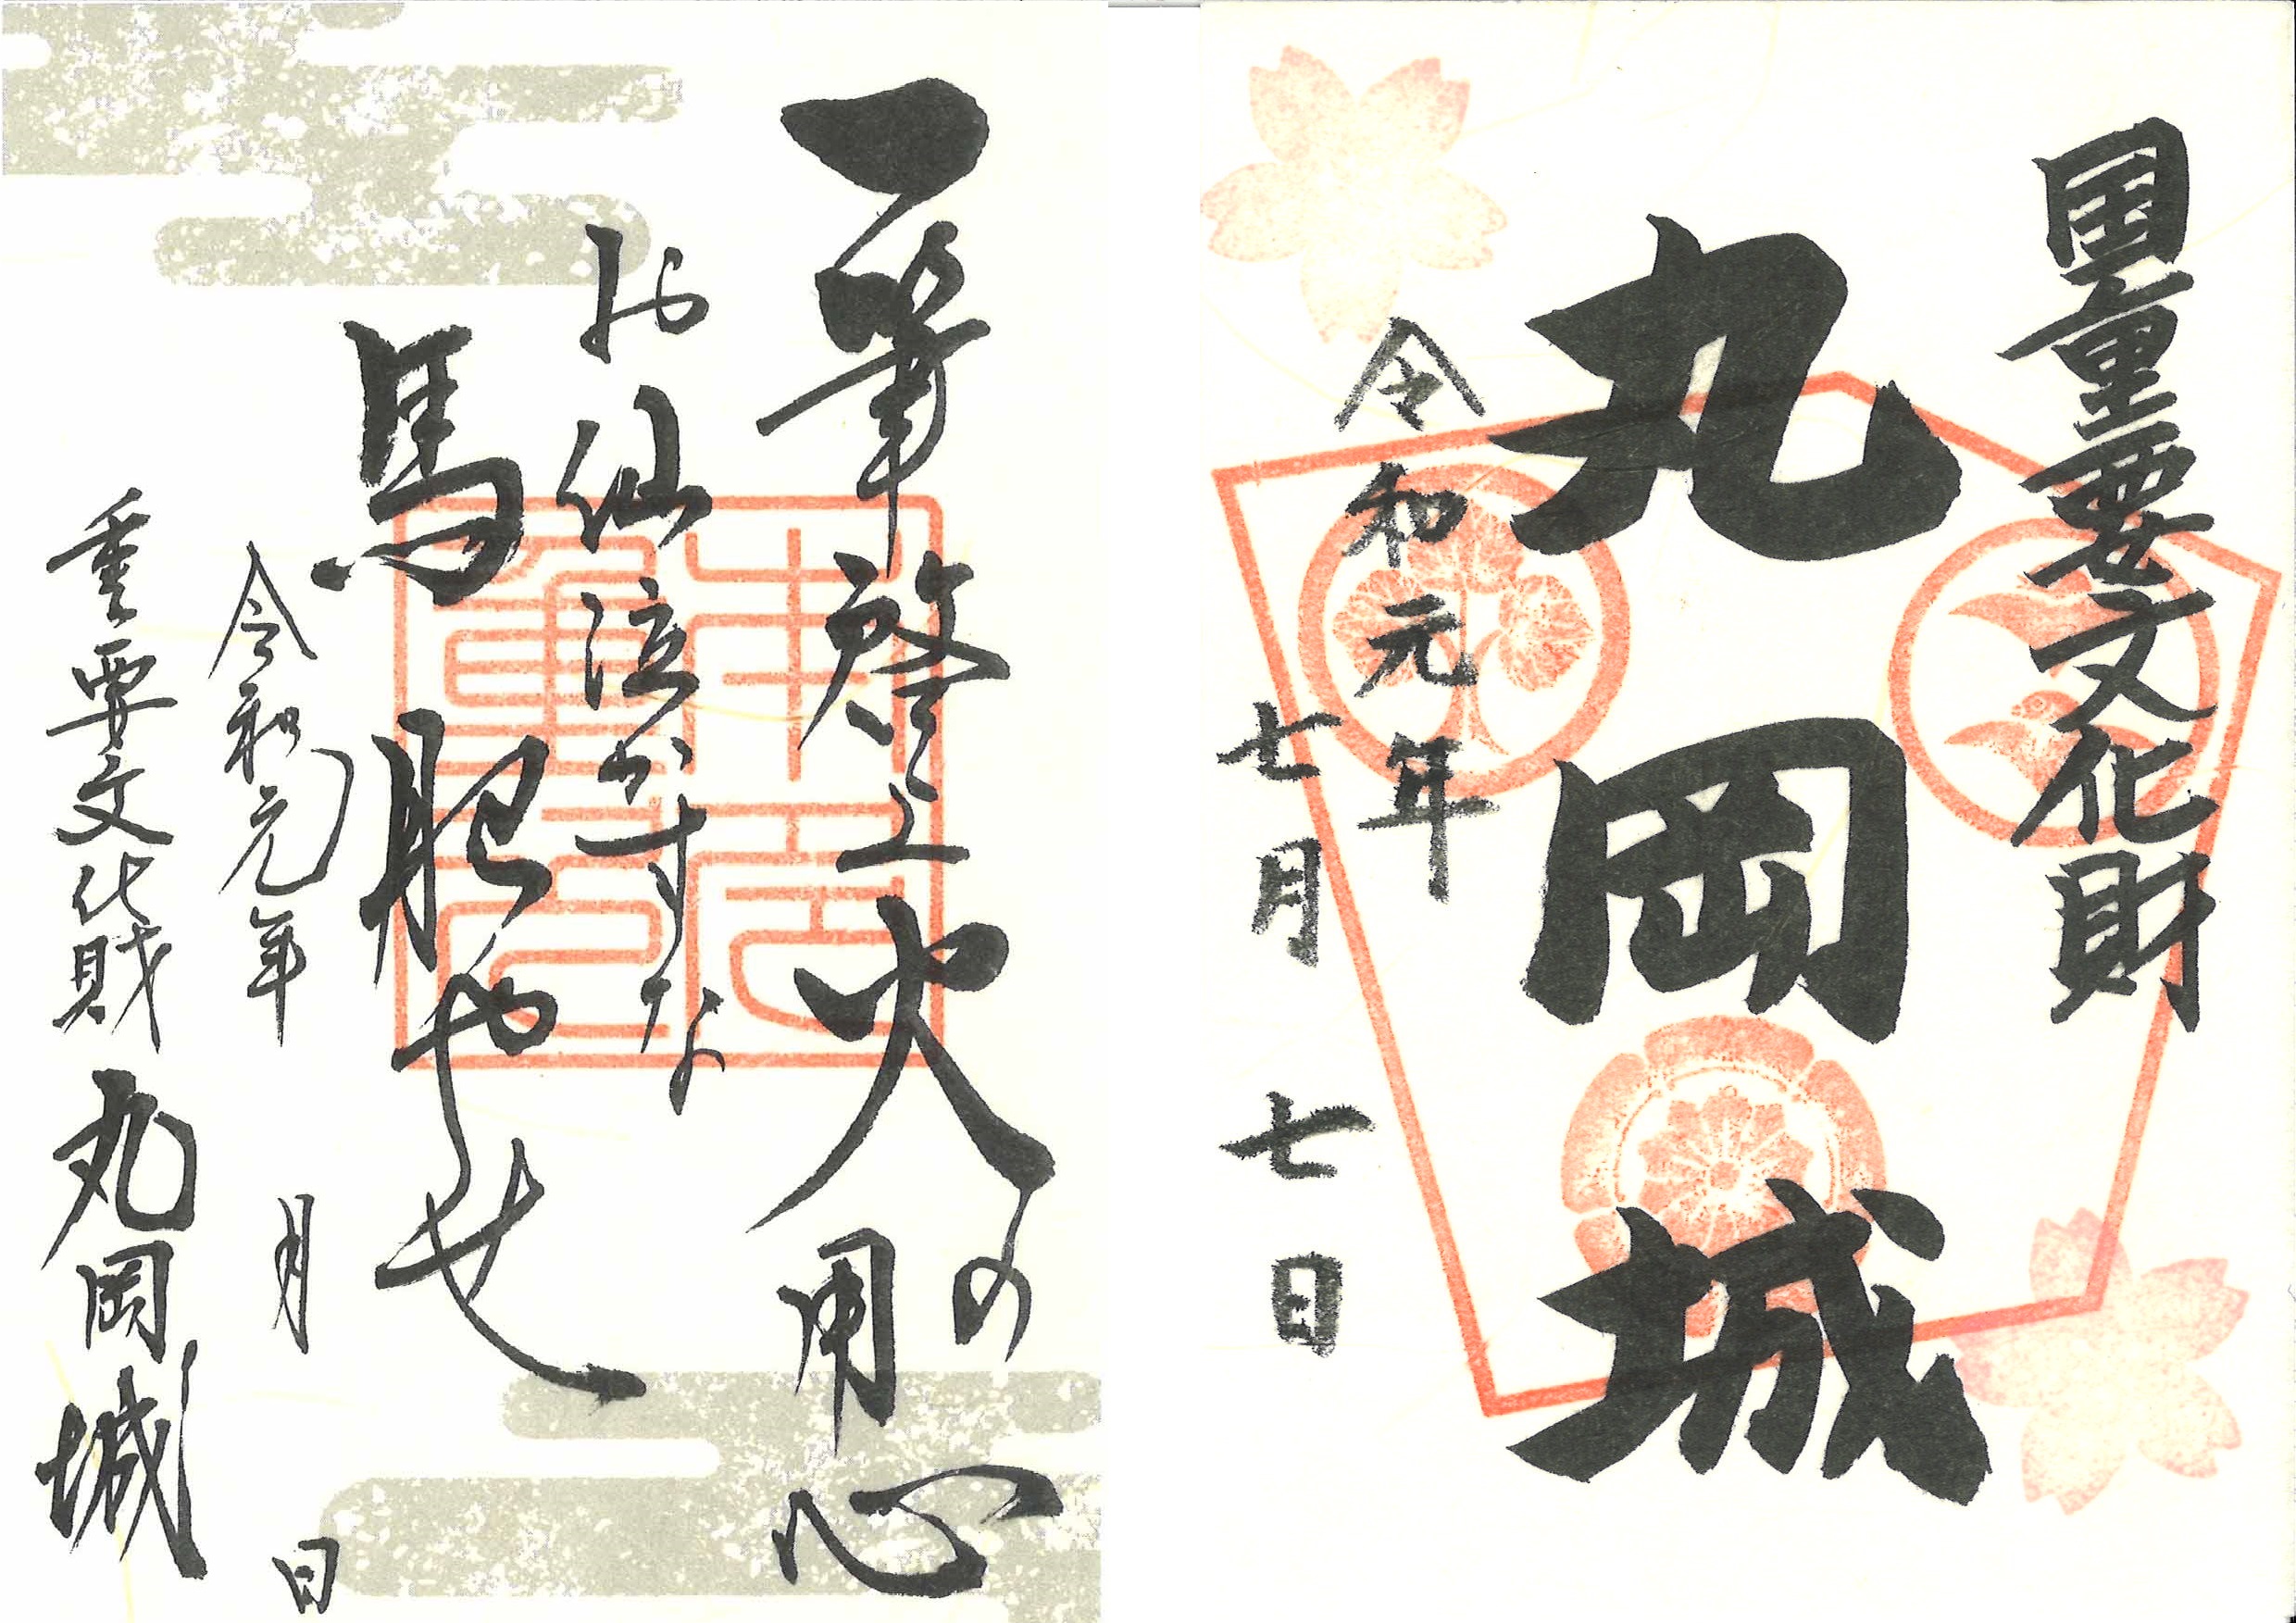 国重要文化財
丸岡城
令和元年
七月七日
一筆啓上火の用心
お仙泣かすな
馬肥やせ
令和元年 月 日
重要文化財 丸岡城